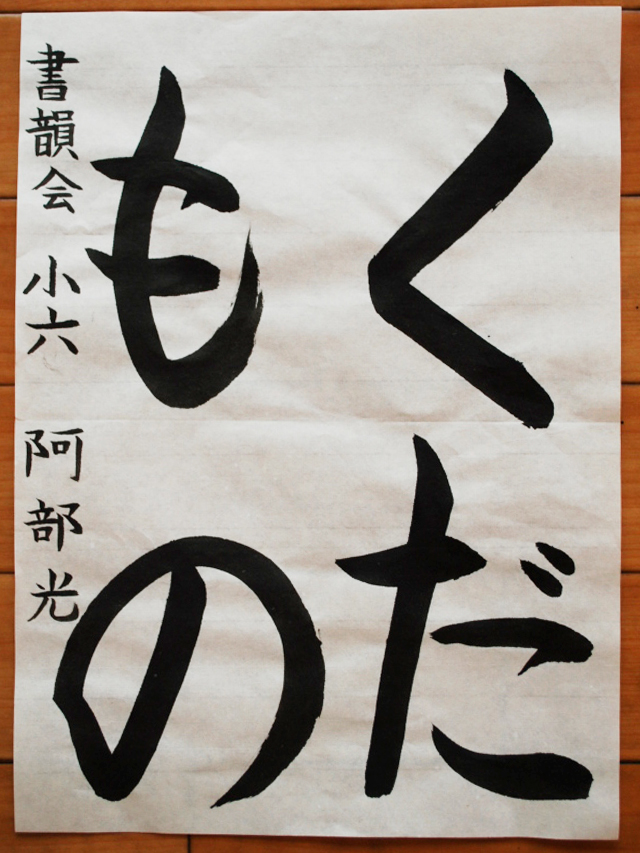 くだ
もの
書韻会 小六 阿部光